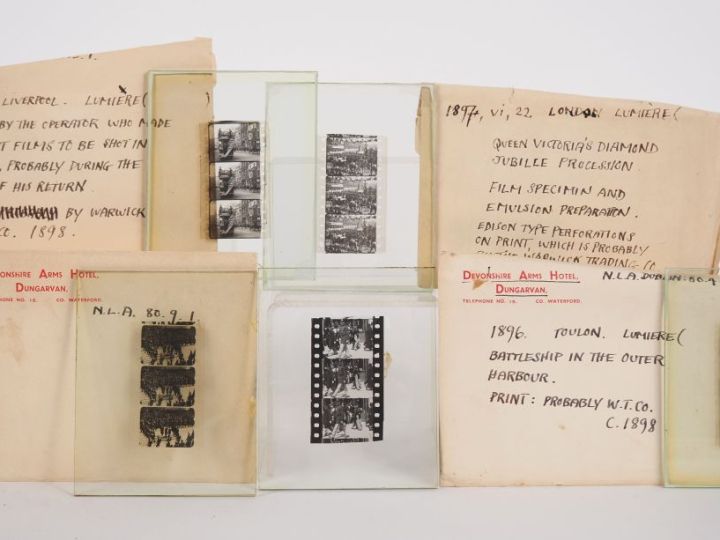 LIVERPOOL. LUMIÈRE(
BY THE OPERATOR WHO MADE
T FILMS TO BE SHOT IN
, PROBABLY DURING THE
F HIS RETURN
BY WARWICK
CO. 1898.
1897, VI, 22 LONDON LUMIÈRE(
QUEEN VICTORIA'S DIAMOND
JUBILLE PROCESSION.
FILM SPECIMIN AND
EMULSION PREPARATION.
EDISON TYPE PERFORATIONS
ON PRINT, WHICH IS PROBABLY
WARWICK TRADING CO
ONSHIRE ARMS HOTEL,
DUNGARVAN.
TELEPHONE NO. 10. CO. WATERFORD.
N.L.A. 80.9.1
DEVONSHIRE ARMS HOTEL,
DUNGARVAN.
TELEPHONE NO. 10. CO. WATERFORD.
N.L.A. DUBLIN. 80.9
1896. TOULON. LUMIERE(
BATTLESHIP IN THE OUTER
HARBOUR.
PRINT: PROBABLY W.T.CO.
C. 1898